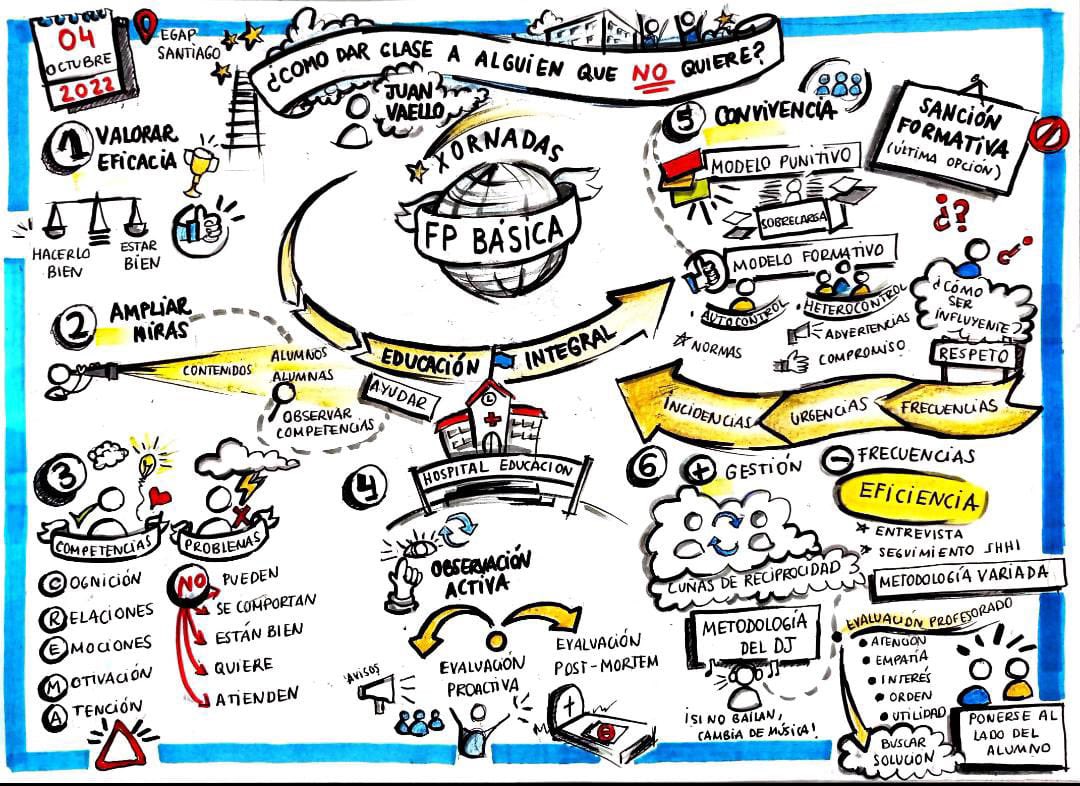 04
OCTUBRE
2022
EGAP
SANTIAGO
¿CÓMO DAR CLASE A ALGUIEN QUE NO QUIERE?
JUAN
VAELLO
X JORNADAS
FP BÁSICA
EDUCACIÓN INTEGRAL
1 VALORAR
EFICACIA
HACERLO
BIEN
ESTAR
BIEN
2 AMPLIAR
MIRAS
CONTENIDOS
ALUMNOS
ALUMNAS
OBSERVAR
COMPETENCIAS
AYUDAR
3
COMPETENCIAS
COGNICIÓN
RELACIONES
EMOCIONES
MOTIVACIÓN
ATENCIÓN
PROBLEMAS
NO
PUEDEN
SE COMPORTAN
ESTÁN BIEN
QUIERE
ATIENDEN
4
HOSPITAL EDUCACION
OBSERVACIÓN
ACTIVA
EVALUACIÓN
PROACTIVA
EVALUACIÓN
POST-MORTEM
AVISOS
5 CONVIVENCIA
MODELO PUNITIVO
SOBRECARGA
MODELO FORMATIVO
AUTOCONTROL
NORMAS
HETEROCONTROL
ADVERTENCIAS
COMPROMISO
SANCIÓN
FORMATIVA
(ÚLTIMA OPCIÓN)
¿?
¿CÓMO
SER
INFLUYENTE?
RESPETO
INCIDENCIAS
URGENCIAS
FRECUENCIAS
6 + GESTIÓN
- FRECUENCIAS
EFICIENCIA
ENTREVISTA
SEGUIMIENTO SHHI
CUNAS DE RECIPROCIDAD
METODOLOGÍA
DEL DJ
¡SI NO BAILAN,
CAMBIA DE MÚSICA!
METODOLOGÍA VARIADA
EVALUACIÓN PROFESORADO
ATENCIÓN
EMPATÍA
INTERÉS
ORDEN
UTILIDAD
BUSCAR
SOLUCIÓN
PONERSE AL
LADO DEL
ALUMNO